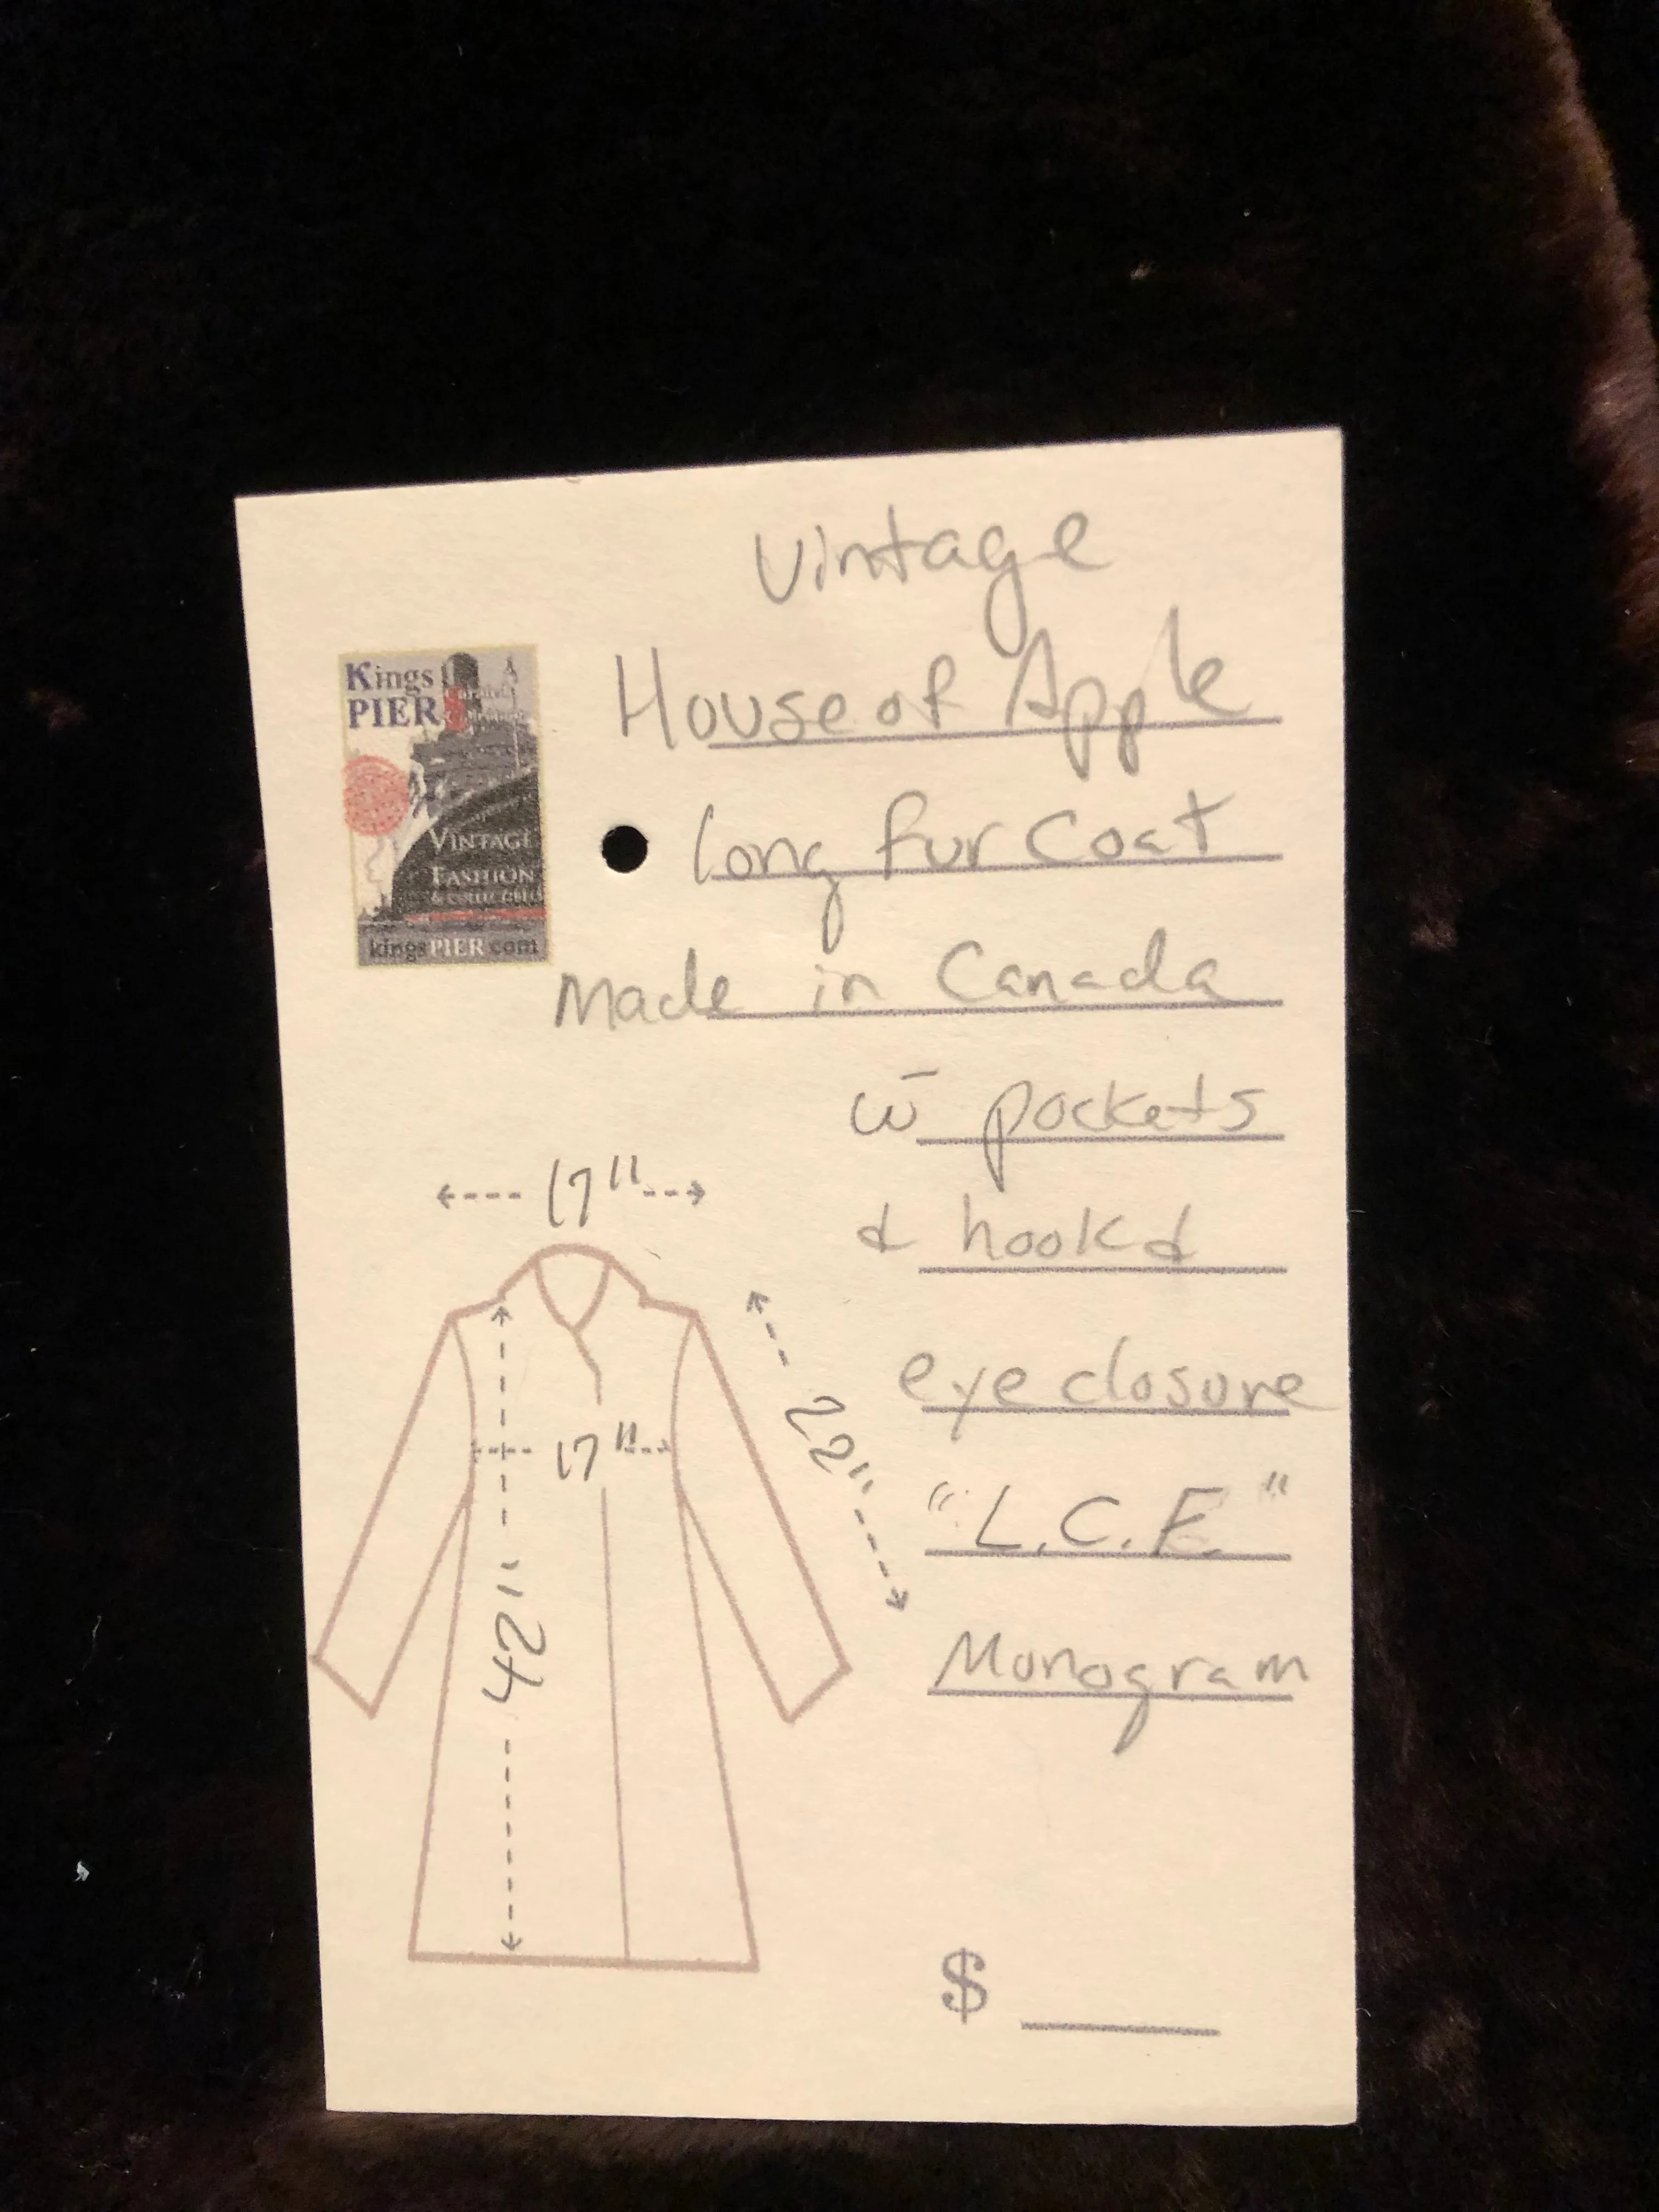 Vintage
House of Apple
long fur coat
Made in Canada
w̄ pockets
& hook &
eye closure
"L.C.E."
Monogram
$
Kings
PIER
VINTAGE
FASHION
& COLLECTIBLES
kingsPIER.com
17"
17"
22"
42"